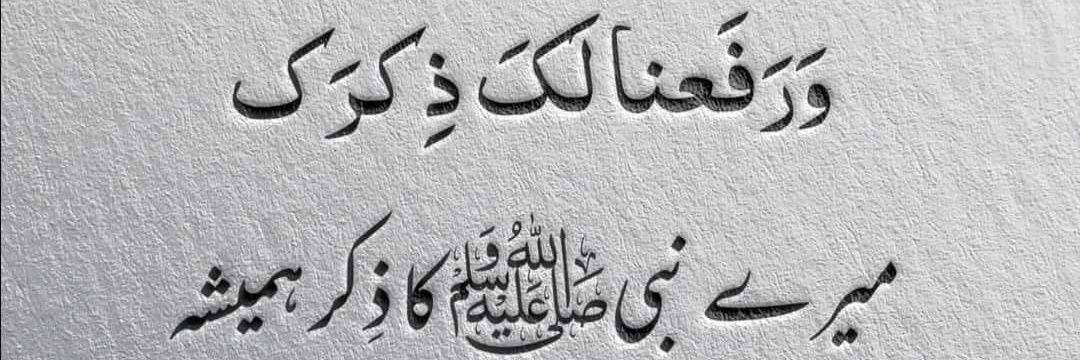 وَرَفَعنا لَکَ ذِکرَک
میرے نبی ﷺ کا ذِکر ہمیشہ